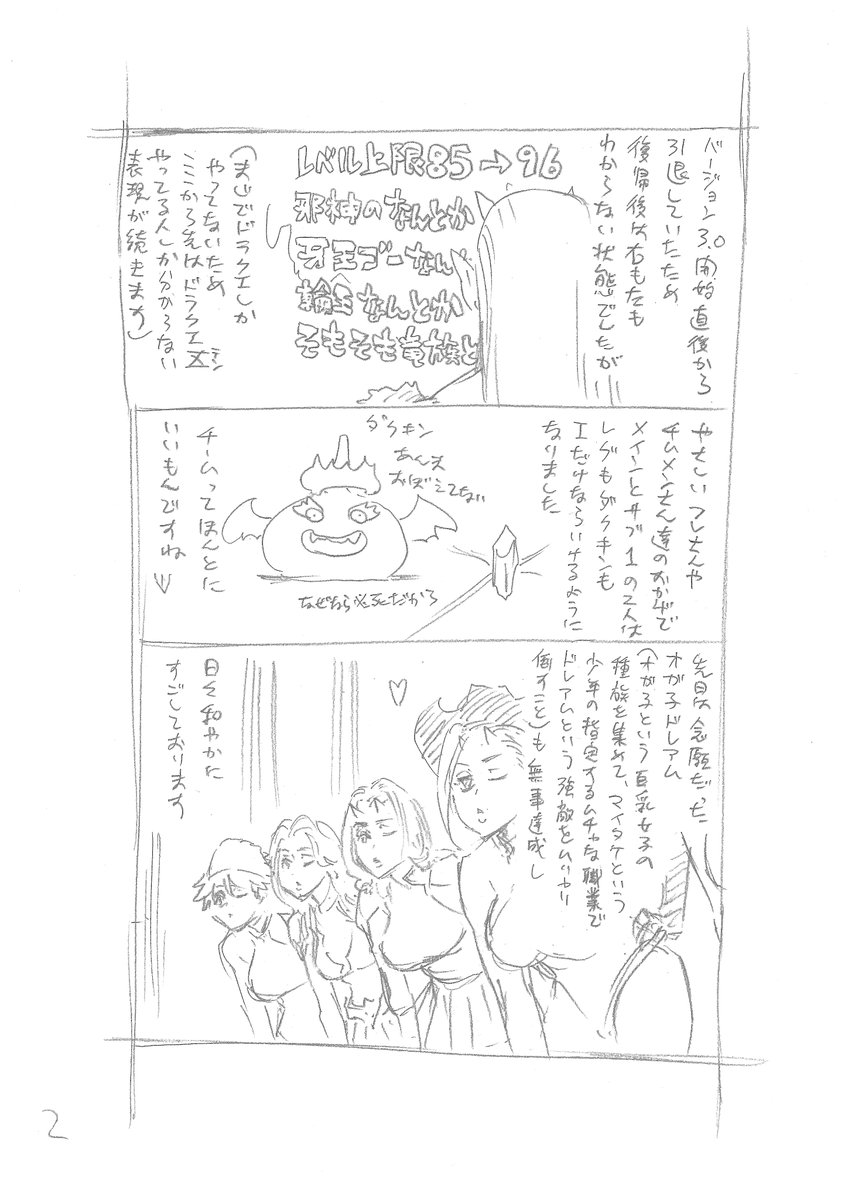 バージョン3.0開始直後から
引退していたため
復帰後は右もたも
わからない状態でしたが
レベル上限85→96
邪神のなんとか
牙王ゴーなん
輪王なんとか
そもそも竜族と
(まじでドラクエしか
やってないため
ここから先はドラクエX
やってる人しか分からない
表現が続きます)
やさしいフレさんや
チムメンさん達のおかげで
メインとサブ1の2人は
レグもダクキンも
Iだけならいけるように
なりました
ダクキン
あんま
おぼえてない
なぜなら必死だから
チームってほんとに
いいもんですね
先日は念願だった
オガ子ドレアム
(オガ子という巨乳女子の
種族を集めて、マイタケという
少年の指定するムチャな職業で
ドレアムという強敵をムリヤリ
倒すこと)も無事達成し
日々和やかに
すごしております
2